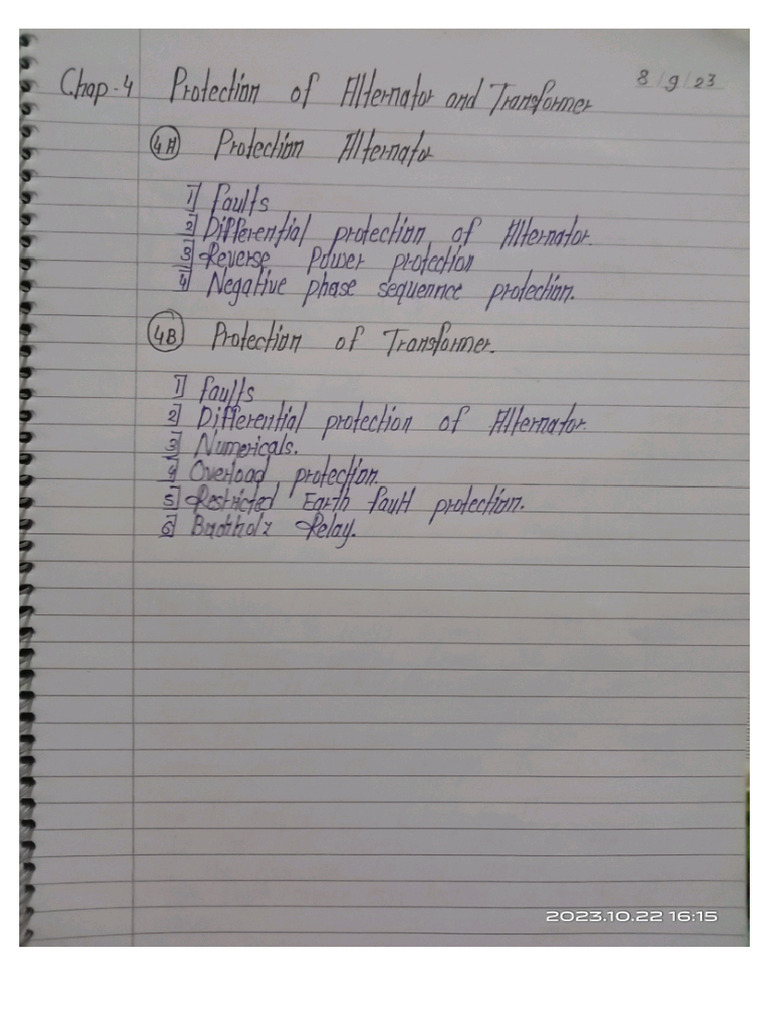 Chap-4 Protection of Alternator and Transformer 8/9/23
4A Protection Alternator
1] faults
2] Differential protection of Alternator.
3] Reverse Power protection
4] Negative phase sequennce protection.
4B Protection of Transformer.
1] faults
2] Differential protection of Alternator.
3] Numericals.
4] Overload protection.
5] Restricted Earth fault protection.
6] Buchholz Relay.
2023.10.22 16:15